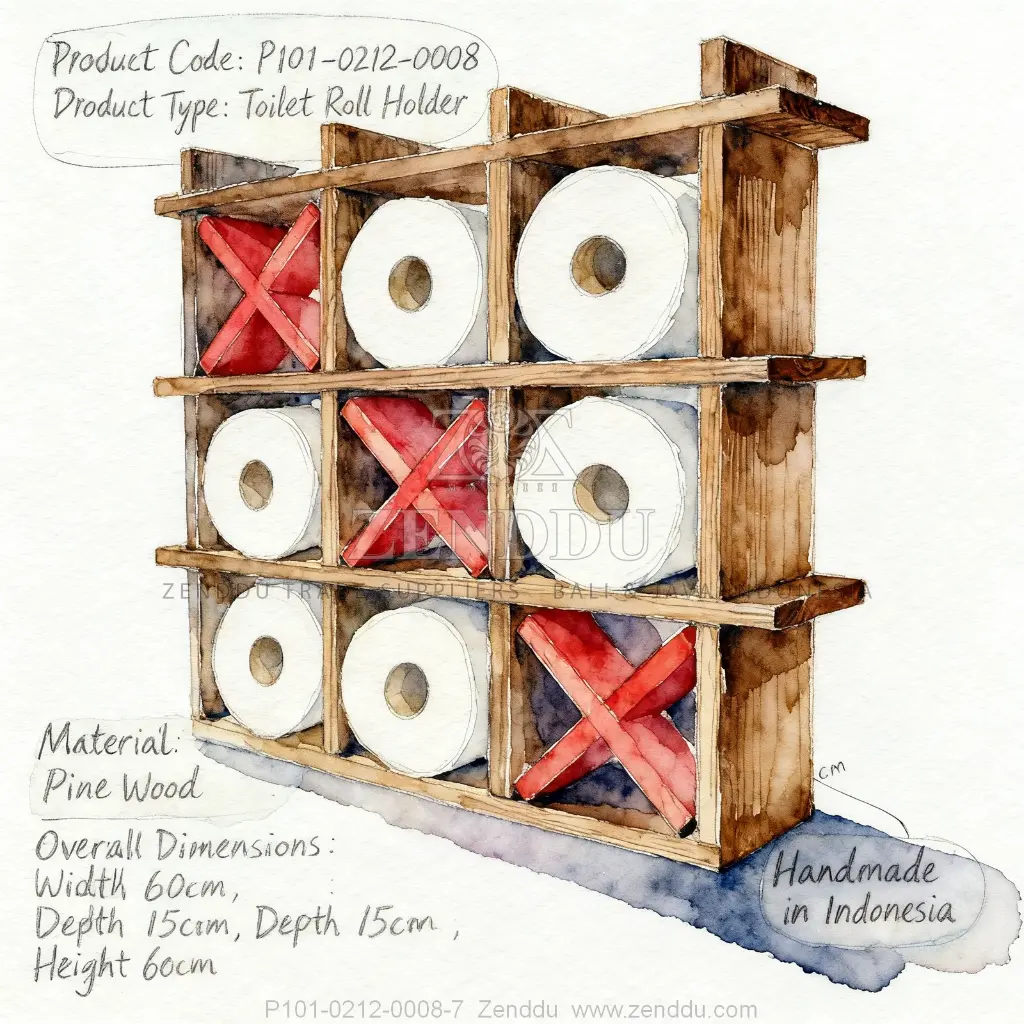 Product Code: P101-0212-0008
Droduct Type: Toilet Roll Holder
ZENDDU
ZENDDU TRA SUPPLIERS BALI JAVA INDONESIA
cm
Material:
Pine Wood
Overall Dimensions:
Width 60cm,
Depth 15cm, Depth 15cm ,
Height 60cm
Handmade
in Indonesia
P101-0212-0008-7 Zenddu www.zenddu.com